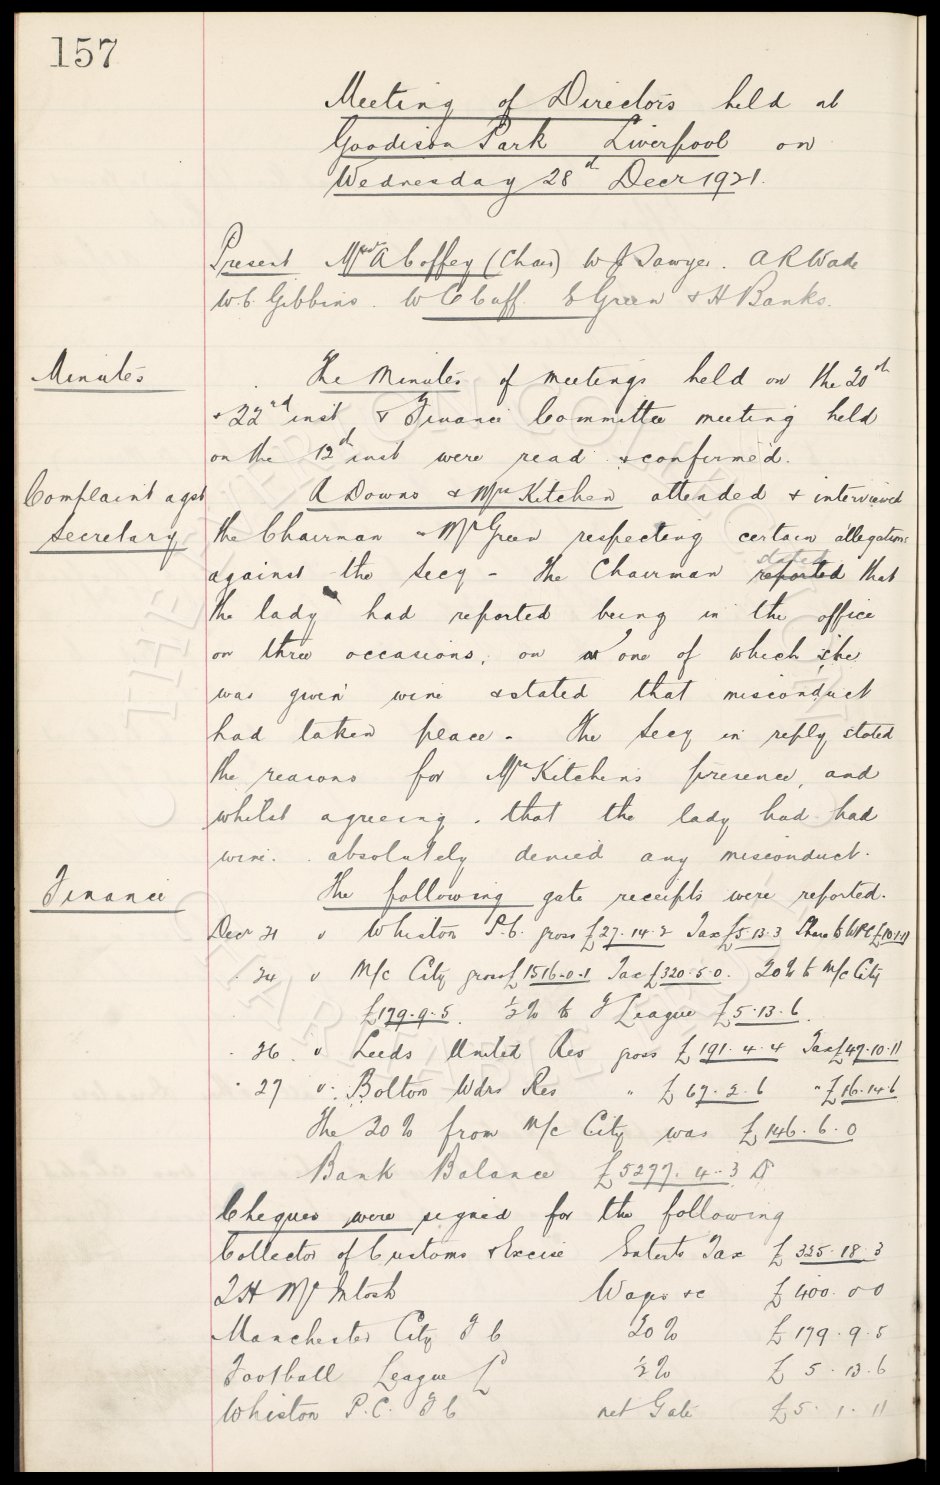 157
Meeting of Directors held at
Goodison Park Liverpool on
Wednesday 28th Decr 1921.
Present Mr A Coffey (Chair) W J Sawyer. A R Wade
W.C. Gibbins. W C Cuff. E Green & H Banks.
Minutes
The Minutes of meetings held on the 20th
& 22nd inst & Finance Committee meeting held
on the 12th inst were read & confirmed.
Complaint agst
Secretary
A Downs & Mrs Kitchen attended & interviewed
the Chairman & Mr Green respecting certain allegations
against the Secy - The Chairman reported stated that
the lady had reported being in the office
on three occasions, on one of which she
was given wine & stated that misconduct
had taken place - The Secy in reply stated
the reasons for Mrs Kitchens presence, and
whilst agreeing that the lady had had
wine absolutely denied any misconduct.
Finance
The following gate receipts were reported.
Decr 21 v Whiston P.C. gross £27.14.2 Tax £5.13.3 Share to WPC
" 24 v M/c City gross £1516.0.1 Tax £320.5.0. 20% to M/c City
£179.9.5. ½% to F League £5.13.6.
" 26 v Leeds United Res gross £191.4.4 Tax £47.10.11
" 27 v. Bolton Wdrs Res " £67.2.6 " £16.14.6
The 20% from M/c City was £146.6.0
Bank Balance £5277.4.3 Dr
Cheques were signed for the following
Collector of Customs & Excise Enterts Tax £325.18.3
T H McIntosh Wages &c £400.0.0
Manchester City F C 20% £179.9.5
Football League Ld ½% £5.13.6
Whiston P.C. F C net Gate £5.1.11
© THE EVERTON COLLECTION
CHARITABLE TRUST